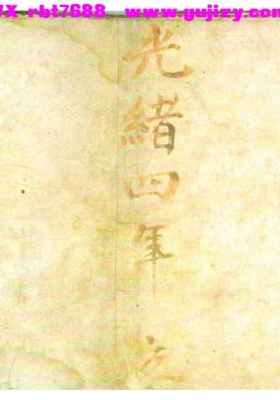 VX rbt7688 www.gujizy.com
光緒四年